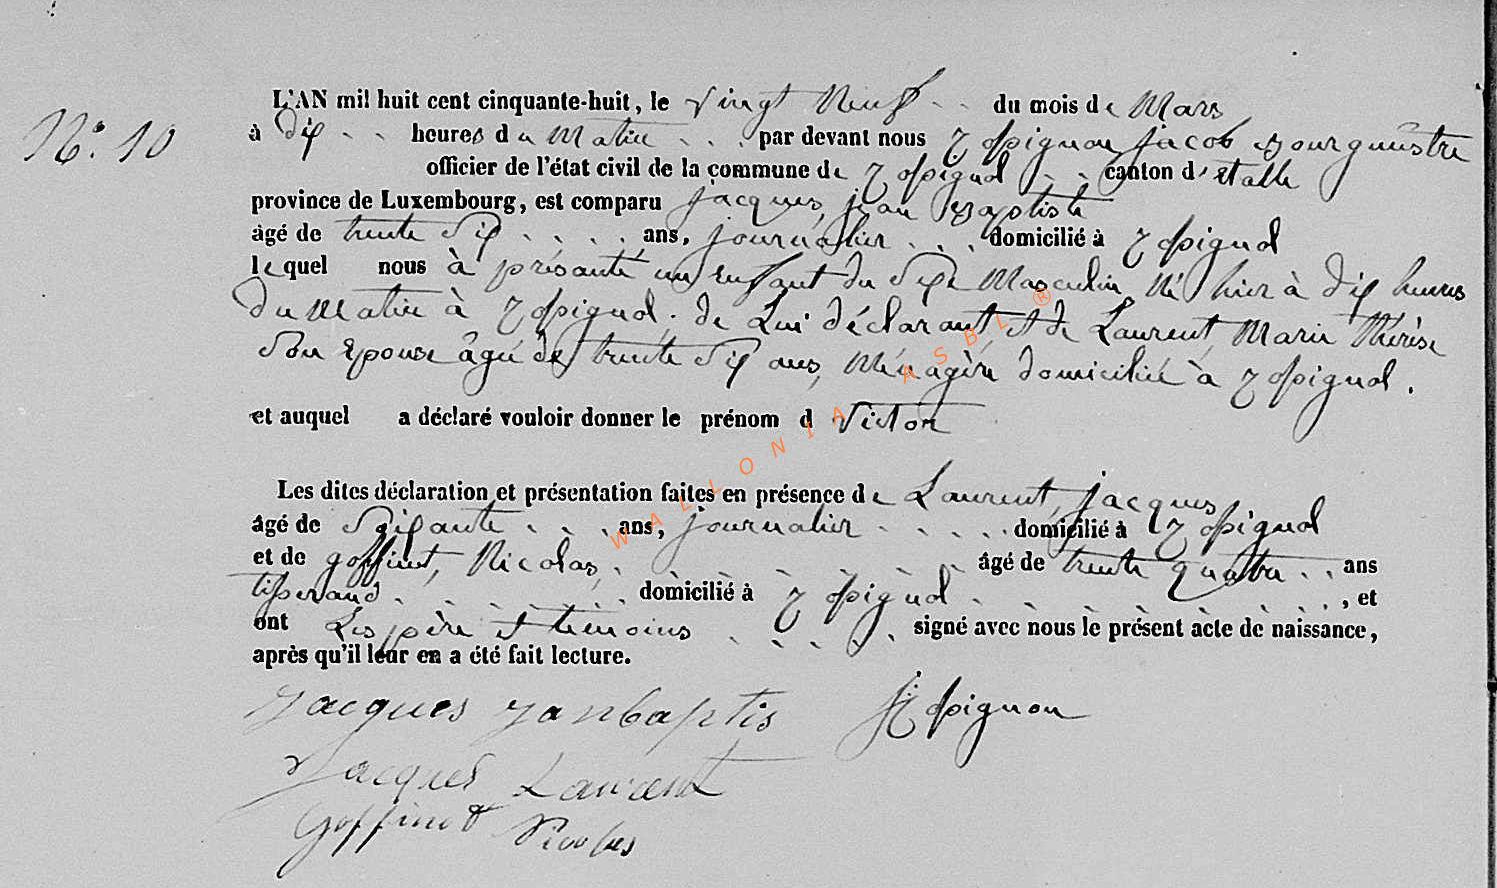 N°. 10
L'AN mil huit cent cinquante-huit, le vingt neuf du mois de Mars
à dix heures du matin par devant nous Rossignon jacob Bourguèstre
officier de l'état civil de la commune de Rossignol canton d'Etalle
province de Luxembourg, est comparu jacques, jean Baptiste
âgé de trente six ans, journalier domicilié à Rossignol
lequel nous à présanté un enfant du sexe Masculin, Né hier à dix heures
du Matin à Rossignol. de Lui déclarant, et de Laurent, Marie Thérèse
son Epouse âgée de trente six ans, Ménagère domiciliée à Rossignol.
et auquel a déclaré vouloir donner le prénom d Victor
Les dites déclaration et présentation faites en présence de Laurent, jacques
âgé de soixante ans, journalier domicilié à Rossignol
et de goffinet, Nicolas, âgé de trente quatre ans
tisserand domicilié à Rossignol, et
ont Les père et témoins signé avec nous le présent acte de naissance,
après qu'il leur en a été fait lecture.
jacques janbaptis JRossignon
Jacques Laurent
Goffinet Nicolas
WALLONIA ASBL ®